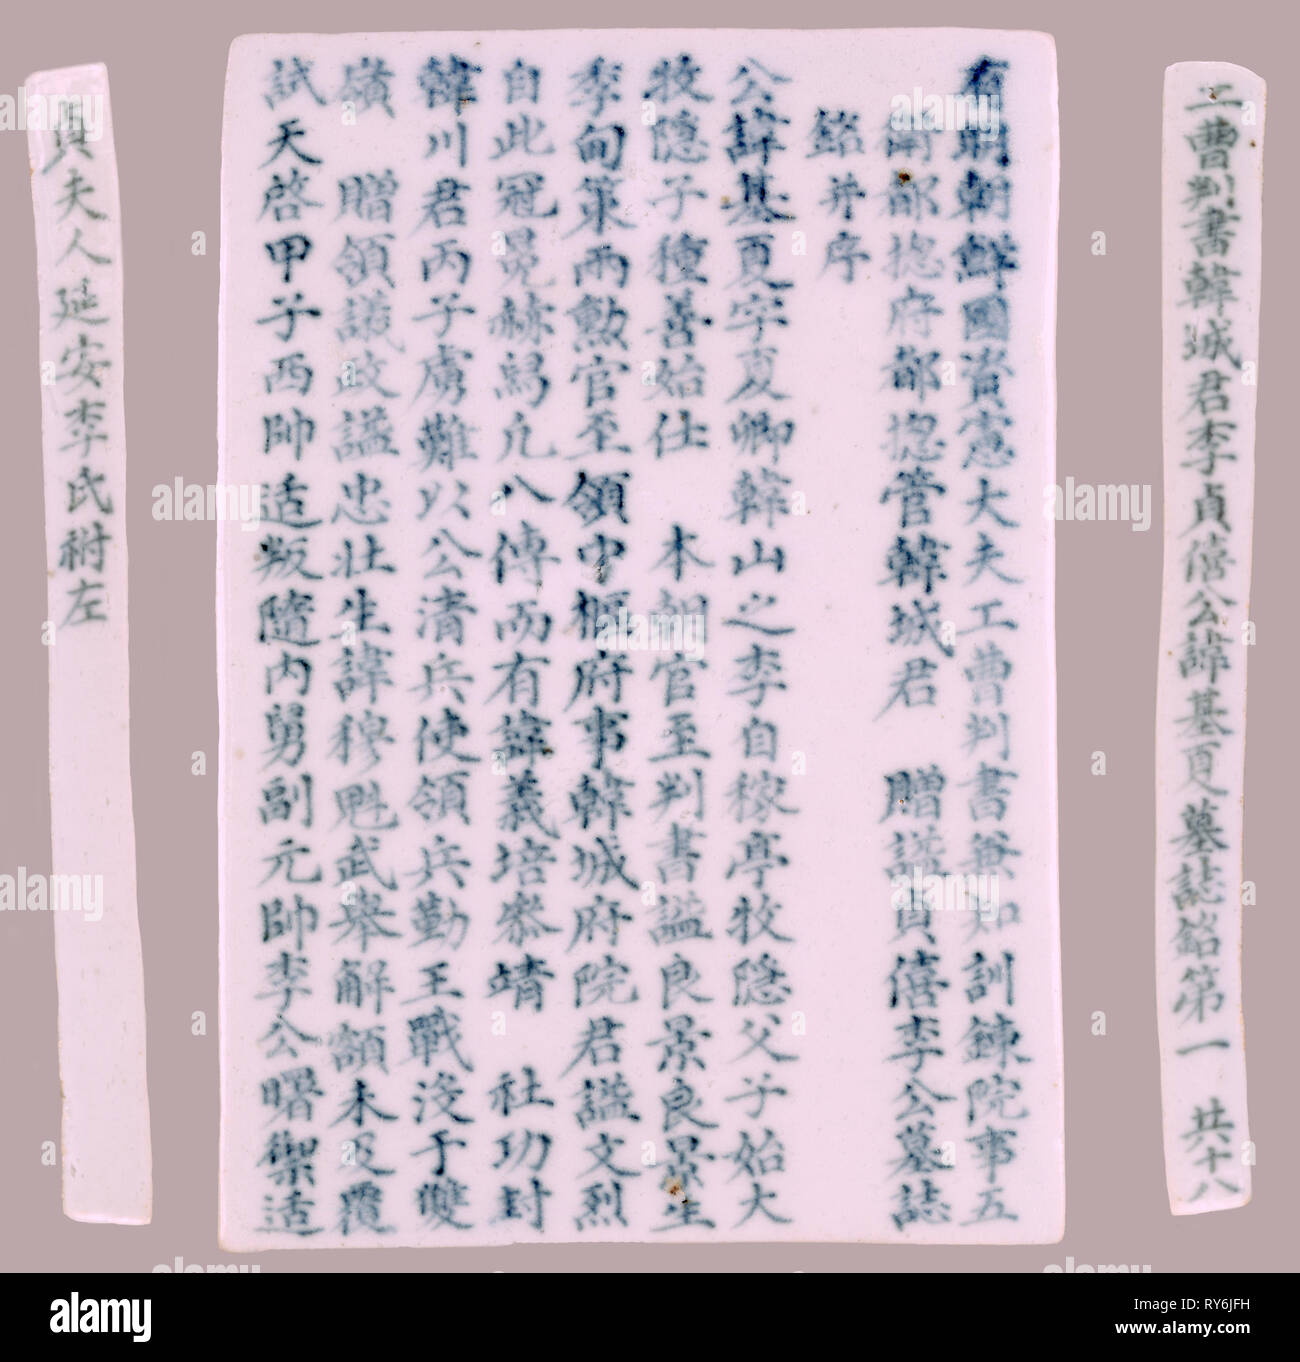 工曹判書韓城君李貞僖公諱基夏墓誌銘第一 共十八
有明朝鮮國資憲大夫工曹判書兼知訓鍊院事五
衛都捴府都捴管韓城君 贈諡貞僖李公墓誌
銘并序
公諱基夏字夏卿韓山之李自稼亭牧隱父子始大
牧隱子種善始仕 本朝官至判書諡良景良景生
季甸策兩勲官至領中樞府事韓城府院君諡文烈
自此冠冕赫舃凡八傳而有諱義培叅靖 社功封
韓川君丙子虜難以公清兵使領兵勤王戰沒于雙
嶺 贈領議政諡忠壯生諱穆魁武舉解額未及覆
試天啓甲子西帥适叛隨内舅副元帥李公曙禦适
貞夫人延安李氏祔左
alamy
Image ID: RY6JFH
www.alamy.com